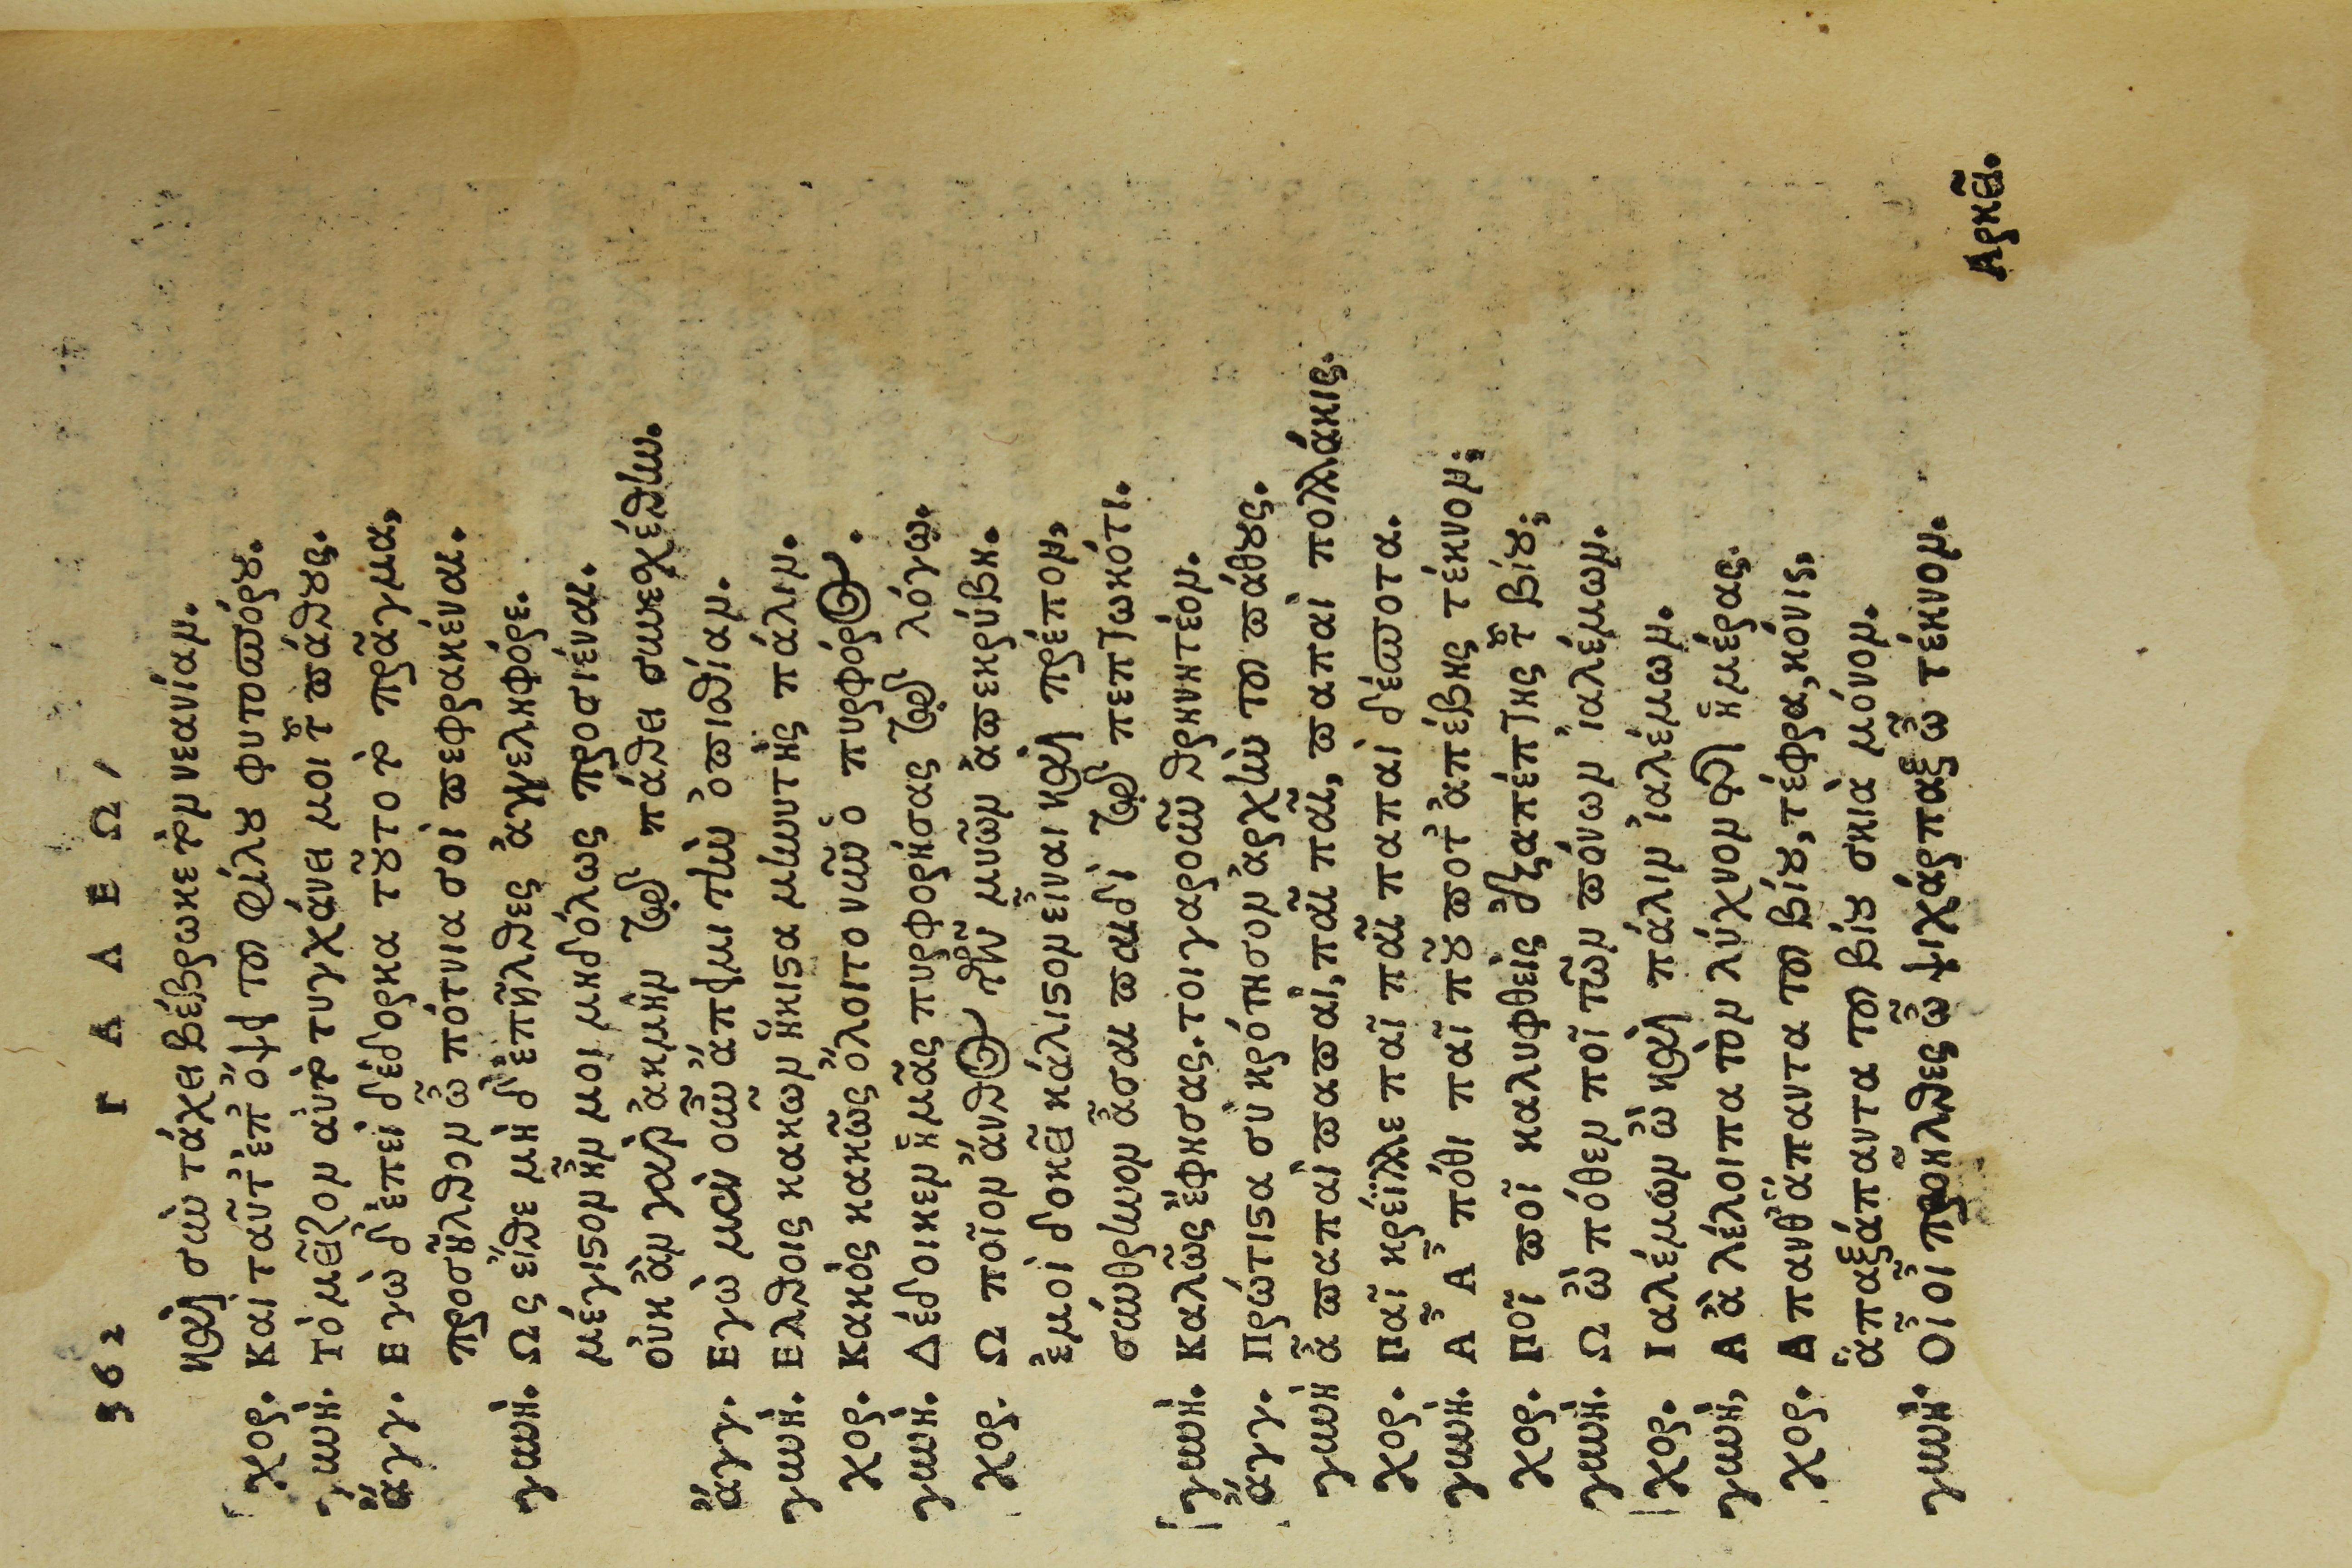 362 Γ Α Λ Ε Ω,
καὶ σὺν τάχει βέβρωκε τὸν νεανίαν.
χορ. Και ταῦτ' ἐπ' ὄψει τοῦ φίλου φυτοσπόρου.
γυνὴ. Τὸ μεῖζον αὐτὸ τυγχάνει μοι τοῦ πάθους.
ἄγγ. Εγὼ δ' ἐπεὶ δέδορκα τοῦτο τὸ πρᾶγμα,
προσῆλθον ὦ πότνια σοὶ πεφρακέναι.
γυνὴ. Ως εἴθε μὴ δ' ἐπῆλθες ἀγγεληφόρε.
μέγιστον ἦν μοι μηδόλως προσιέναι.
οὐκ ἂν γὰρ ἀκμὴν τῷ πάθει συνεχέθην.
ἄγγ. Εγὼ μὲν οὖν ἄπειμι τὴν ὀπισθίαν.
γυνὴ. Ελθοις κακῶν ἥκιστα μηνυτὴς πάλιν.
χορ. Κακὸς κακῶς ὄλοιτο νῦν ὁ πυρφόρος.
γυνὴ. Δέδοικεν ἡμᾶς πυρφορήσας τῷ λόγῳ.
χορ. Ω ποῖον ἄνθος τῶν μυῶν ἀπεκρύβη.
ἐμοὶ δοκεῖ κάλιστον εἶναι καὶ πρέπον,
σύνθρηνον ᾆσαι παιδὶ τῷ πεπτωκότι.
γυνὴ. Καλῶς ἔφησας. τοιγαροῦν θρηνητέον.
ἄγγ. Πρώτιστα συγκρότησον ἀρχὴν τοῦ πάθους.
γυνὴ ἆ παπαὶ παπαὶ, παῖ παῖ, παπαὶ πολλάκις.
χορ. Παῖ κρείϊλλε παῖ παῖ παπαὶ δέσποτα.
γυνὴ. Α͂ Α͂ πόθι παῖ ποῦ ποτ' ἀπέβης τέκνον;
χορ. Ποῖ ποῖ καλυφθεὶς ἐξαπέπτης τοῦ βίου;
γυνὴ. Ω ὢ πόθεν ποῖ τῶν πόνων ἰαλέμων.
χορ. Ιαλέμων ὢ καὶ πάλιν ἰαλέμων.
γυνὴ, Α ἂ λέλοιπα τὸν λύχνον τῆς ἡμέρας.
χορ. Α πανθ' ἅπαντα τοῦ βίου, τέφρα, κόνις,
ἅπαξάπαντα τοῦ βίου σκιὰ μόνον.
γυνὴ. Οἶ οἶ προῆλθες ὦ ψιχάρπαξ ὦ τέκνον.
Αρκεῖ.